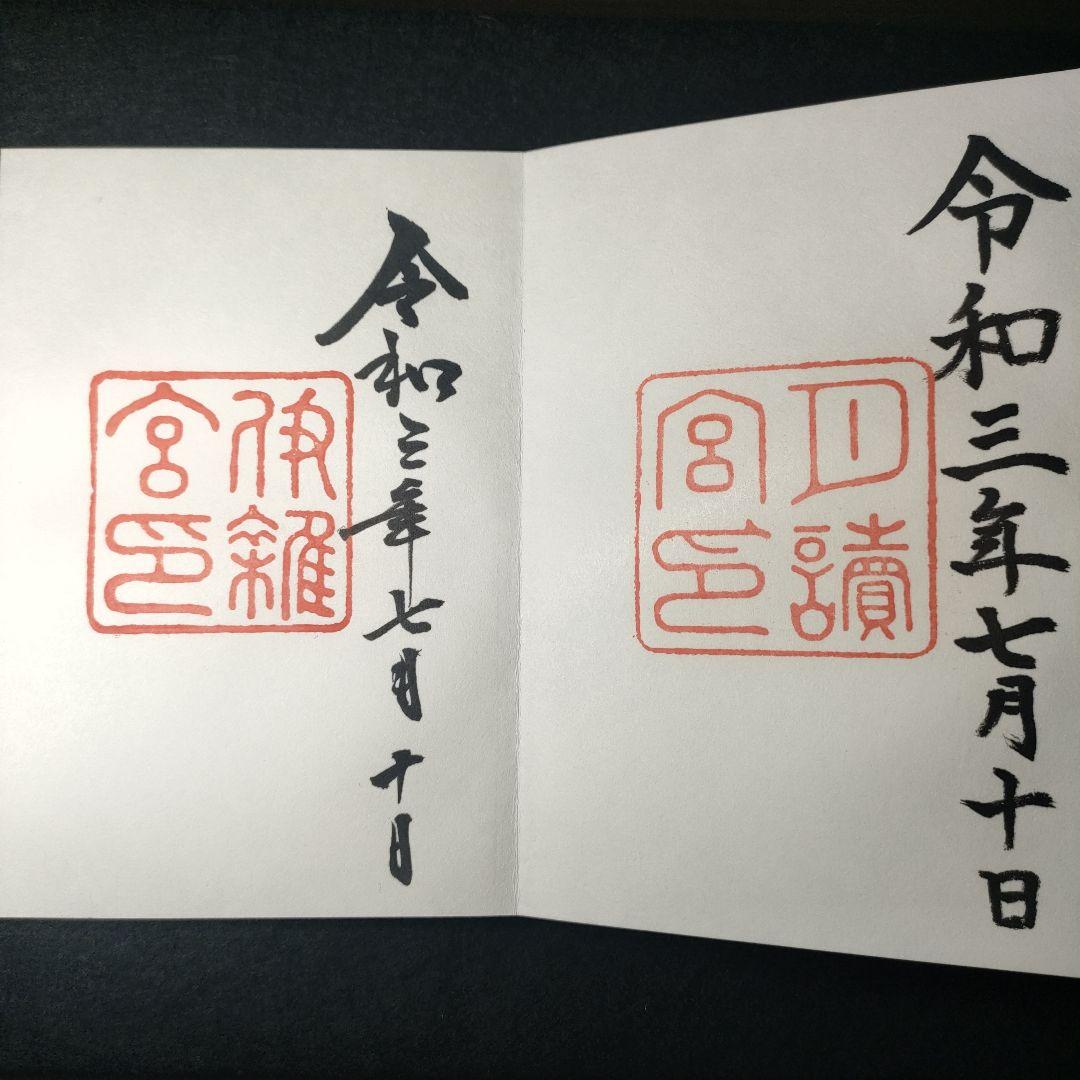 令和三年七月十日
月讀
宮印
令和三年七月十日
伊雜
宮印